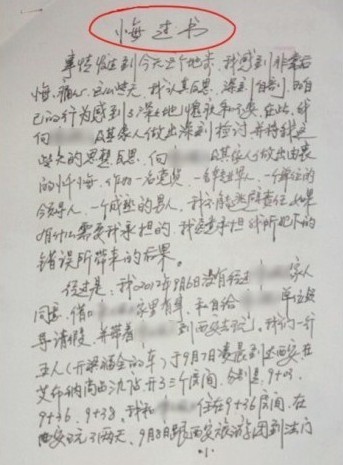 悔过书
事情发生到今天这个地步,我感到非常后
悔、痛心,这些天,我认真反思,深刻自剖,对自
己的行为感到深深地愧疚和不安,在此,我
向 及其家人做出深刻检讨并将我这
些天的思想反思,向 及其家人做出由衷
的忏悔,作为一名党员,一名单位人,一个单位的
领导人,一个成熟的男人,我不能逃避责任,如果
有什么需要我承担的,我愿意承担我所犯下的
错误所带来的后果。
经过是:我2012年9月6日没有经过 家人
同意,借口 家里有事,私自给 单位领
导请假,并带着 到西安去玩,我们一行
五人(开 的车)于9月7日凌晨到达西安,在
开了三个房间,分别是,9+03,
9+36,9+38,我和 住在9+36房间,在
西安玩了两天,9月8日跟西安旅游团到法门